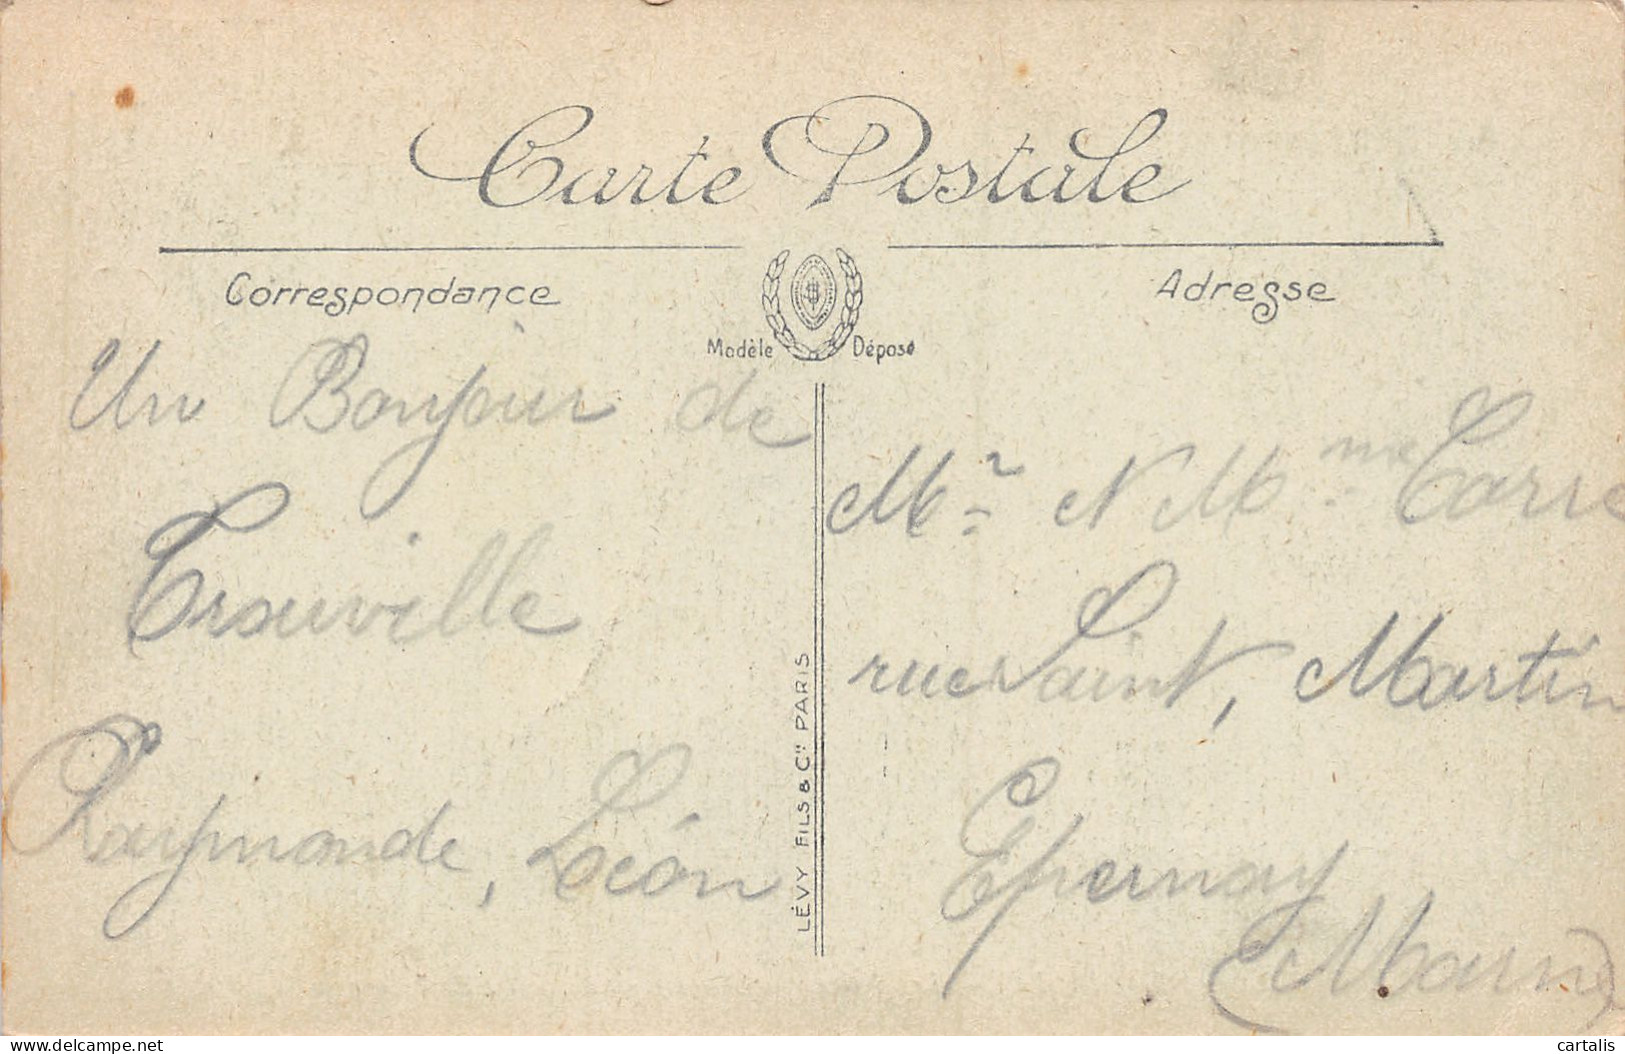 Carte Postale
Correspondance
Adresse
Modèle Déposé
Un Bonjour de
Trouville
Raymonde, Léon
LÉVY FILS & Cie PARIS
Mr et Mme Carre
rue Saint, Martin
Epernay
(Marne)
delcampe.net
cartalis